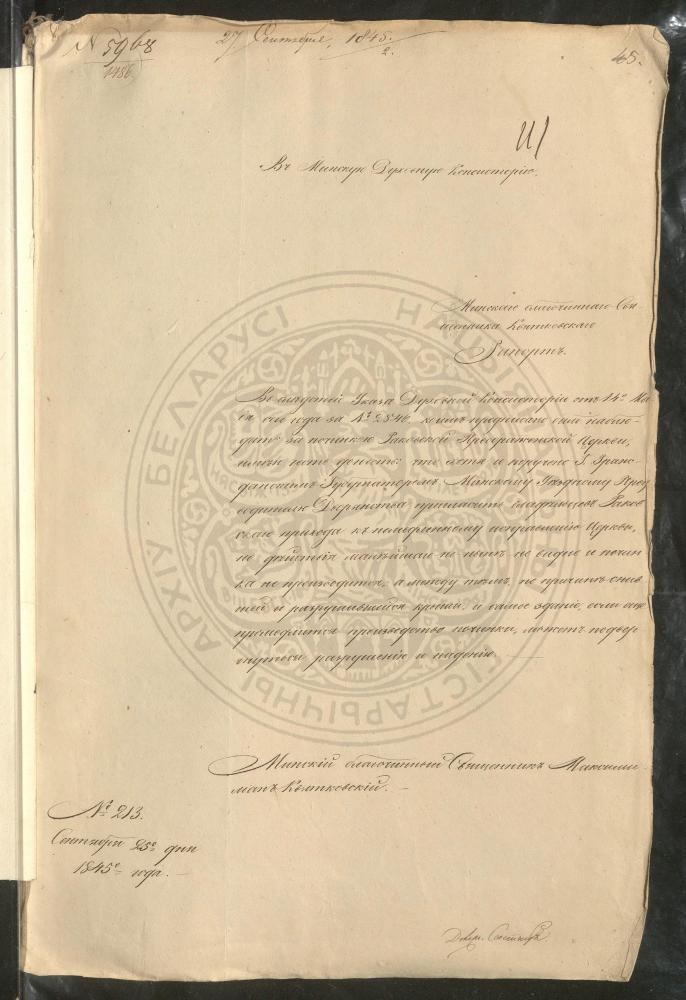 N 5968
1486
27 Сентября, 1845.
2.
45.
Въ Минскую Духовную Консисторію.
Минскаго благочиннаго Свя-
щенника Квятковскаго
Рапортъ.
Во слѣдствіе Указа Духовной Консисторіи отъ 14º Ма-
я сего года за № 2840, коимъ предписано мнѣ наблю-
дать за починкою Раковской Преображенской Церкви,
имѣю честь донесть: что хотя и поручено Г. Граж-
данскимъ Губернаторомъ Минскому Уѣздному Пред
водителю Дворянства пригласить владѣльцовъ Раков-
скаго прихода къ исправленію Церкви,
но дѣйствія малѣйшаго по нынѣ не видно и почин-
ка не производится, а между тѣмъ, по причинѣ сгнив-
шей и разрушившейся крыши, и самое зданіе, если еще
продлится производство починки, можетъ подвер-
гнуться разрушенію и паденію.
Минскій благочинный Священникъ Максими-
ліанъ Квятковскій.
№ 213.
Сентября 25º дня
1845º года.
НАЦЫЯНАЛЬНЫ ГІСТАРЫЧНЫ АРХІЎ БЕЛАРУСІ